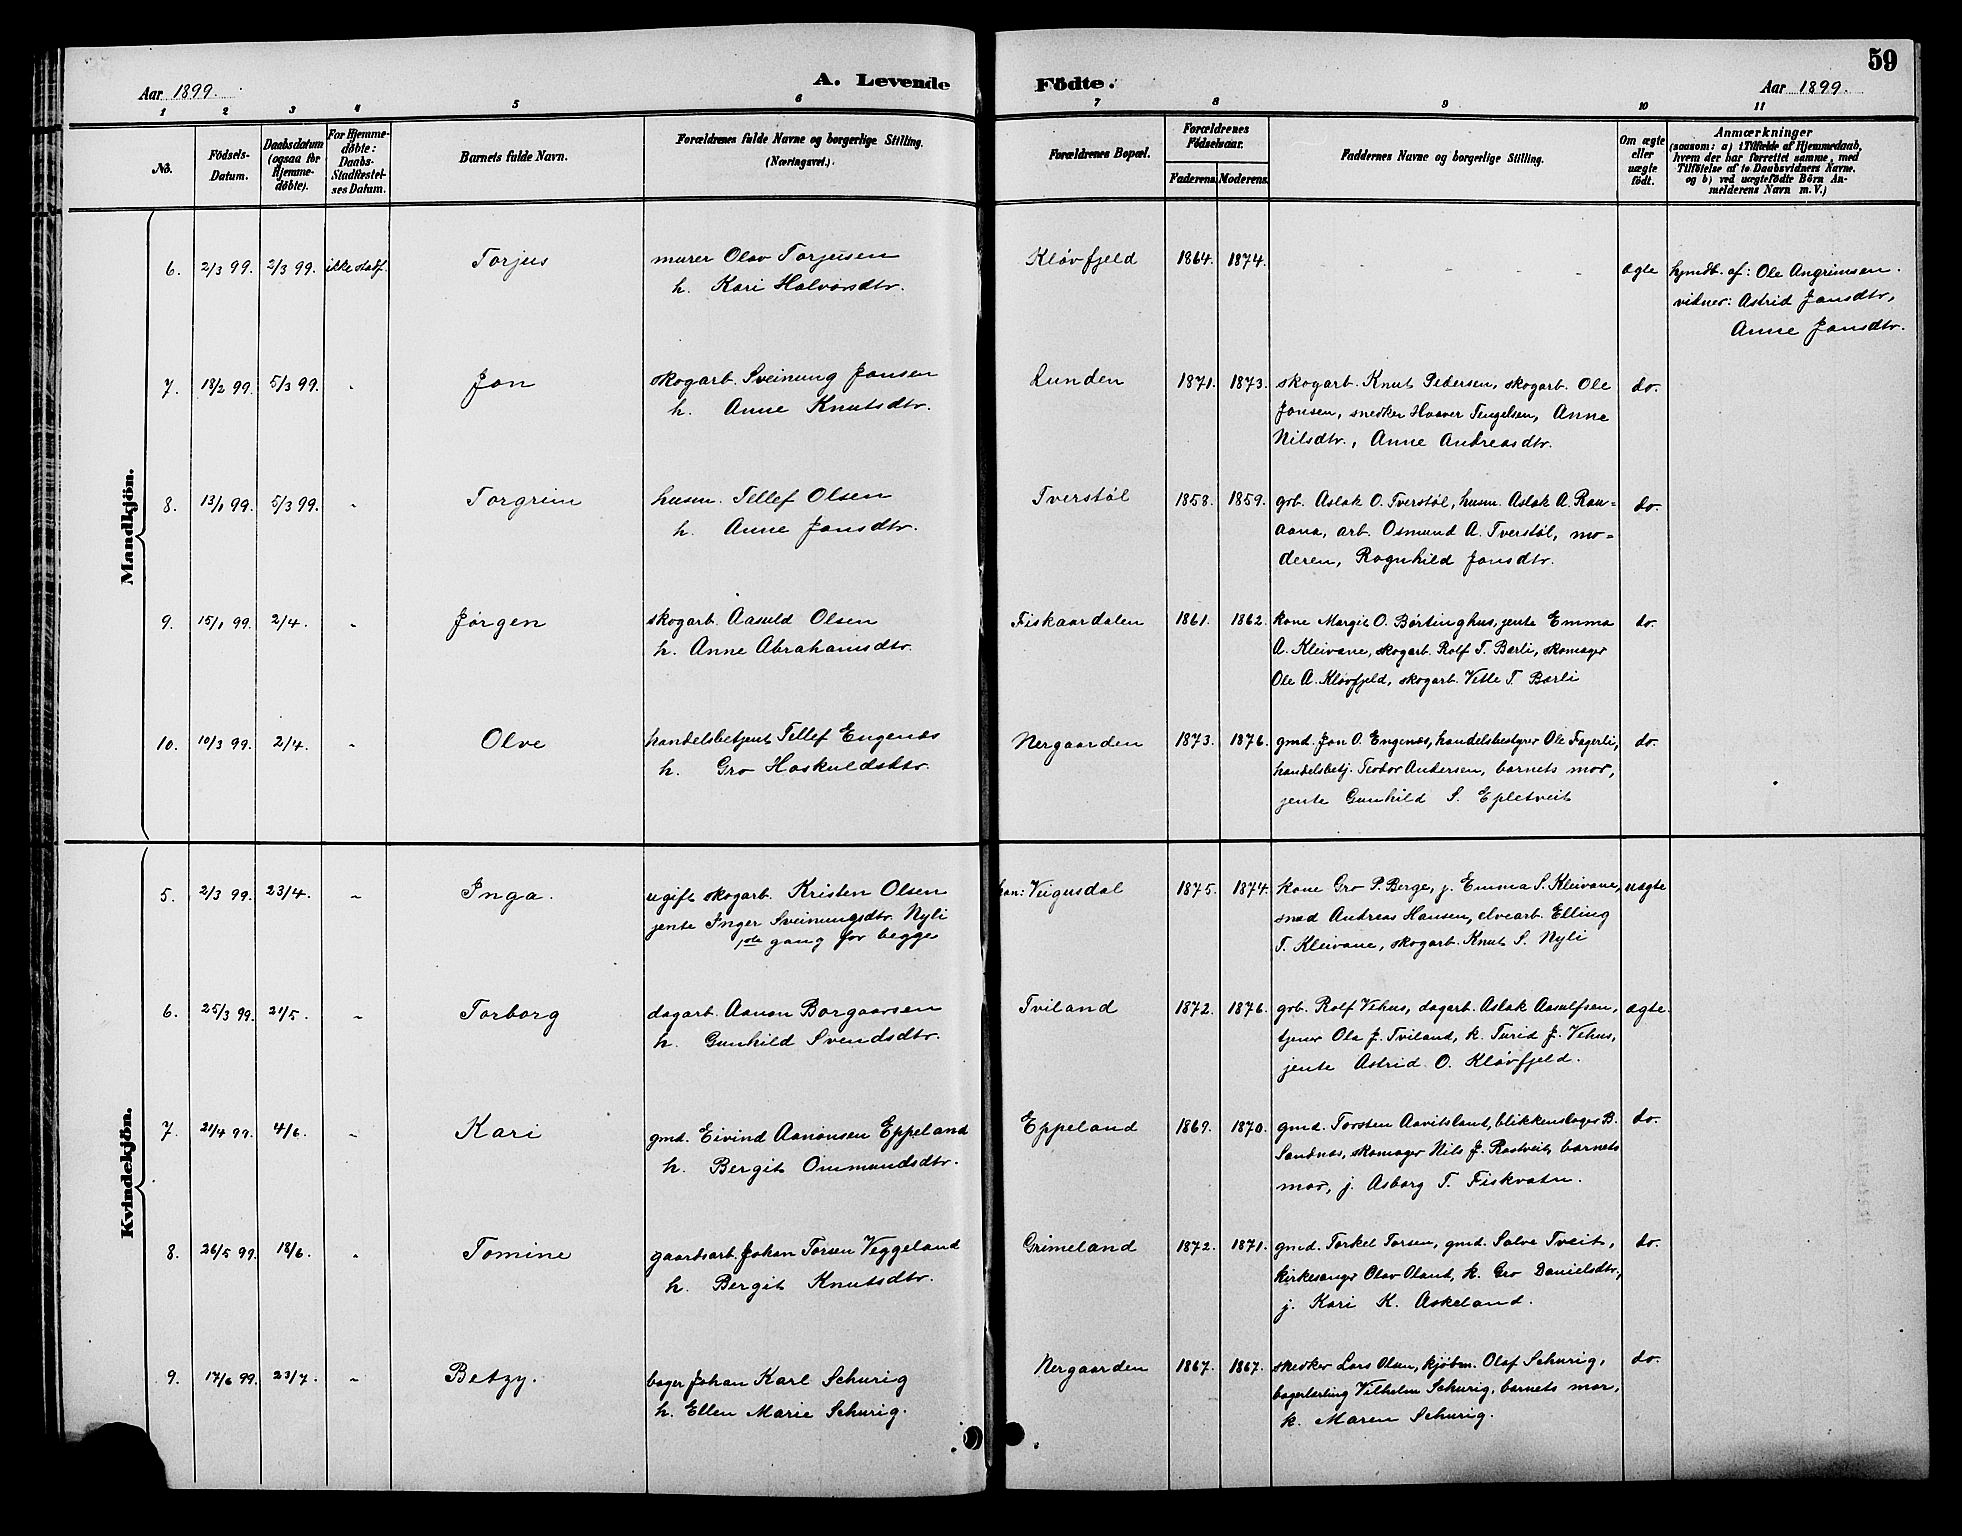 59
Aar 1899.
A. Levende
Födte.
Aar 1899.
1 2 3 4 5 6 7 8 9 10 11
No.
Födsels-
Datum.
Daabsdatum
(ogsaa for
Hjemme-
døbte).
For Hjemme-
døbte:
Daabs-
Stadfæstel-
ses Datum.
Barnets fulde Navn.
Forældrenes fulde Navne og borgerlige Stilling.
(Næringsvei.)
Forældrenes Bopæl.
Forældrenes
Fødselsaar.
Faderens. Moderens.
Faddernes Navne og borgerlige Stilling.
Om ægte
eller
uægte
født.
Anmærkninger
(saasom: a) i Tilfælde af Hjemmedaab,
hvem der har forrettet samme, med
Tilføielse af to Daabsvidners Navne.
og b) ved uægtefødte Börn An-
melderens Navn m. V.)
Mandkjön.
6. 2/3 99. 2/3 99. ikke stadf. Torjus murer Olav Torjusen Kløvfjeld 1864. 1874. - - - - ægte hjmdb. af: Ole Angrimsen.
h. Kari Halvorsdtr. vidner: Astrid Jonsdtr,
Anne Jonsdtr.
7. 18/2 99. 5/3 99. " Jon skogarb. Sveinung Jonsen Lunden 1871. 1873. skogarb. Knut Pedersen, skogarb. Ole do.
h. Anne Knutsdtr. Jonsen, snedker Haaver Tengelsen, Anne
Nilsdtr., Anne Andreasdtr.
8. 13/1 99. 5/3 99. " Torgrim husm. Tellef Olsen Tverstøl 1858. 1859. grb. Aslak O. Tverstøl, husm. Aslak A. Rau= do.
h. Anne Jonsdtr. aana, arb. Osmund A. Tverstøl, mo=
deren, Ragnhild Jonsdtr.
9. 15/1 99. 2/4. " Jørgen skogarb. Aasuld Olsen Fiskaardalen 1861. 1862. kone Margit O. Børtinghus, jente Emma do.
h. Anne Abrahamsdtr. A. Kleivane, skogarb. Rolf T. Bærli, skomager
Ole A. Kløvfjeld, skogarb. Vetle T. Bærli
10. 10/3 99. 2/4. " Olve handelsbetjent Tellef Engenæs Nergaarden 1873. 1876. gmd. Jon O. Engenæs, handelsbestyrer Ole Fagerli, do.
h. Gro Haskuldsdtr. handelsbetj. Teodor Andersen, barnets mor,
jente Gunhild S. Epletveit
Kvindekjön.
5. 2/3 99. 23/4. " Inga. ugift skogarb. Kristen Olsen han: Veigusdal 1875. 1874. kone Gro P. Berge, j. Emma S. Kleivane, uægte
jente Inger Sveinungsdtr. Nyli sned Andreas Hansen, elvearb. Elling
1ste gang for begge T. Kleivane, skogarb. Knut S. Nyli
6. 25/3 99. 21/5. " Torborg dagarb. Aanon Borgaarsen Tviland 1872. 1876. grb. Rolf Vehus, dagarb. Aslak Aasulfsen, ægte.
h. Gunhild Svendsdtr. tjener Ola J. Tviland, k. Turid J. Vehus,
jente Astrid O. Kløvfjeld.
7. 21/4 99. 4/6. " Kari gmd. Eivind Aanonsen Eppeland Eppeland 1869. 1870. gmd. Torsten Aavitsland, blikkenslager B. do.
h. Bergit Ommundsdtr. Sandnæs, skomager Nils J. Rostveit, barnets
mor, j. Asborg T. Fiskvatn.
8. 26/5 99. 18/6. " Tomine gaardsarb. Johan Torsen Veggeland Grimeland 1872. 1871. gmd. Torkel Torsen, gmd. Salve Tveit, do.
h. Bergit Knutsdtr. kirkesanger Olav Oland, k. Gro Danielsdtr,
j. Kari K. Askeland.
9. 17/6 99. 23/7. " Betzy. bager Johan Karl Schurig Nergaarden 1867. 1867. snedker Lars Olsen, kjøbm. Olaf Schurig, do.
h. Ellen Marie Schurig. bagerlerling Vilhelm Schurig, barnets mor,
k. Maren Schurig.